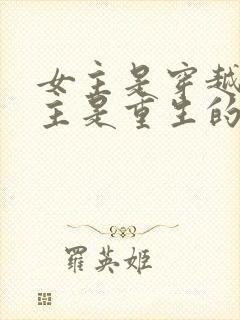 女主是穿越
主是重生的
羅英姬